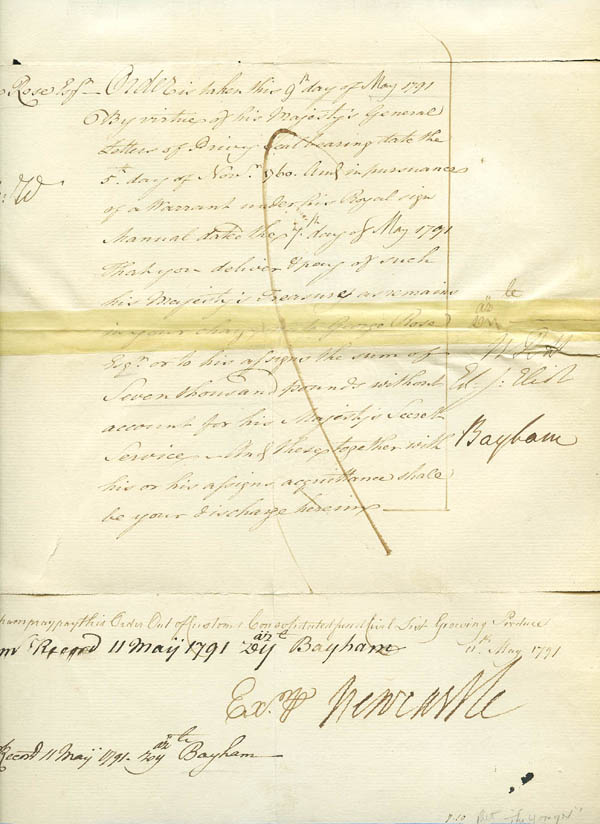 Rose Esqr. Order is taken this 9th day of May 1791
By virtue of his Majesty's General
Letters of Privy Seal bearing date the
5th. day of Novr. 1760. And in pursuance
of a Warrant under his Royal sign
Manual dated the 7th. day of May 1791
That you deliver & pay of such
his Majesty's Treasure as remains
in your charge unto George Rose
Esqr. or to his assigns the sum of
Seven thousand pounds without
account for his Majesty's Secret
Service And these together with
his or his assigns acquittance shall
be your discharge herein
W Pitt
Ed. J: Eliot
Bayham
pray pay this Order Out of Customs Consolidated fund Civil List Growing Produce
Record 11 Maij 1791 Bayham 11th. May 1791
Exr. Newcastle
Record 11 Maij 1791. Bayham